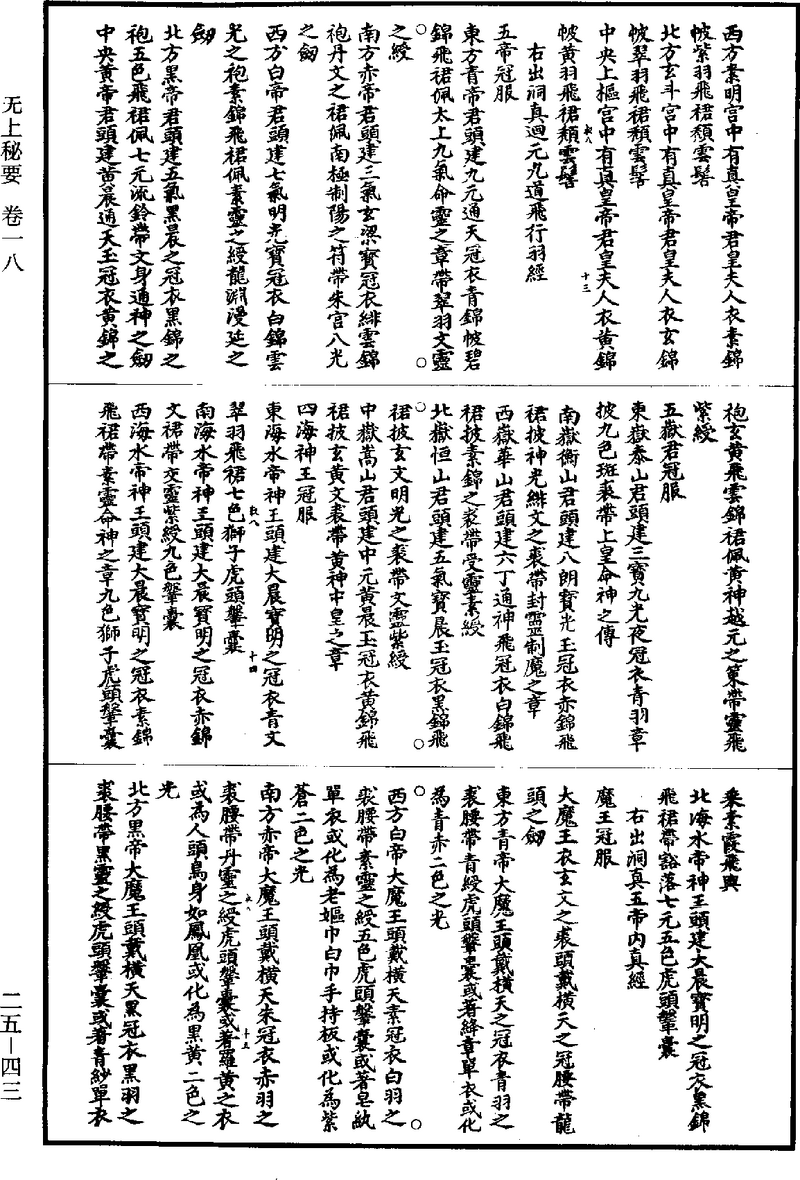 西方素明宫中有真皇帝君皇夫人衣素錦
帔紫羽飛裙頹雲髻
北方玄斗宫中有真皇帝君皇夫人衣玄錦
帔翠羽飛裙頹雲髻
中央上樞宫中有真皇帝君皇夫人衣黄錦
十三
帔黄羽飛裙頹雲髻
右出洞真迴元九道飛行羽經
五帝冠服
東方青帝君頭建九元通天冠衣青錦帔碧
錦飛裙佩太上九氣命靈之章帶翠羽文靈
之綬
南方赤帝君頭建三氣玄梁寶冠衣緋雲錦
袍丹文之裙佩南極制陽之符帶朱宫八光
之劒
西方白帝君頭建七氣明光寶冠衣白錦雲
光之袍素錦飛裙佩素靈之綬龍淵漫延之
劒
北方黑帝君頭建五氣黑晨之冠衣黑錦之
袍五色飛裙佩七元流鈴帶文身通神之劒
中央黄帝君頭建黄晨通天玉冠衣黄錦之
袍玄黄飛雲錦裙佩黄神越元之策帶靈飛
紫綬
五嶽君冠服
東嶽泰山君頭建三寶九光夜冠衣青羽章
披九色斑裘帶上皇命神之傳
南嶽衡山君頭建八朗寶光玉冠衣赤錦飛
裙披神光緋文之裘帶封靈制魔之章
西嶽華山君頭建六丁通神飛冠衣白錦飛
裙披素錦之裘帶受靈素綬
北嶽恒山君頭建五氣寶晨玉冠衣黑錦飛
裙披玄文明光之裘帶文靈紫綬
中嶽嵩山君頭建中元黄晨玉冠衣黄錦飛
裙披玄黄文裘帶黄神中皇之章
四海神王冠服
東海水帝神王頭建大晨寶明之冠衣青文
十四
翠羽飛裙七色獅子虎頭鞶囊
南海水帝神王頭建大晨寶明之冠衣赤錦
文裙帶交靈紫綬九色鞶囊
西海水帝神王頭建大晨寶明之冠衣素錦
飛裙帶素靈命神之章九色獅子虎頭鞶囊
乘素霞飛輿
北海水帝神王頭建大晨寶明之冠衣黑錦
飛裙帶豁落七元五色虎頭鞶囊
右出洞真五帝内真經
魔王冠服
大魔王衣玄文之裘頭戴横天之冠腰帶龍
頭之劒
東方青帝大魔王頭戴横天之冠衣青羽之
裘腰帶青綬虎頭鞶囊或著絳章單衣或化
為青赤二色之光
西方白帝大魔王頭戴横天素冠衣白羽之
裘腰帶素靈之綬五色虎頭鞶囊或著皂紈
單衣或化為老嫗巾白巾手持板或化為紫
蒼二色之光
南方赤帝大魔王頭戴横天朱冠衣赤羽之
裘腰帶丹靈之綬虎頭鞶囊或著羅黄之衣
十五
或為人頭鳥身如鳳凰或化為黑黄二色之
光
北方黑帝大魔王頭戴横天黑冠衣黑羽之
裘腰帶黑靈之綬虎頭鞶囊或著青紗單衣
无上秘要 卷一八
二五－四三